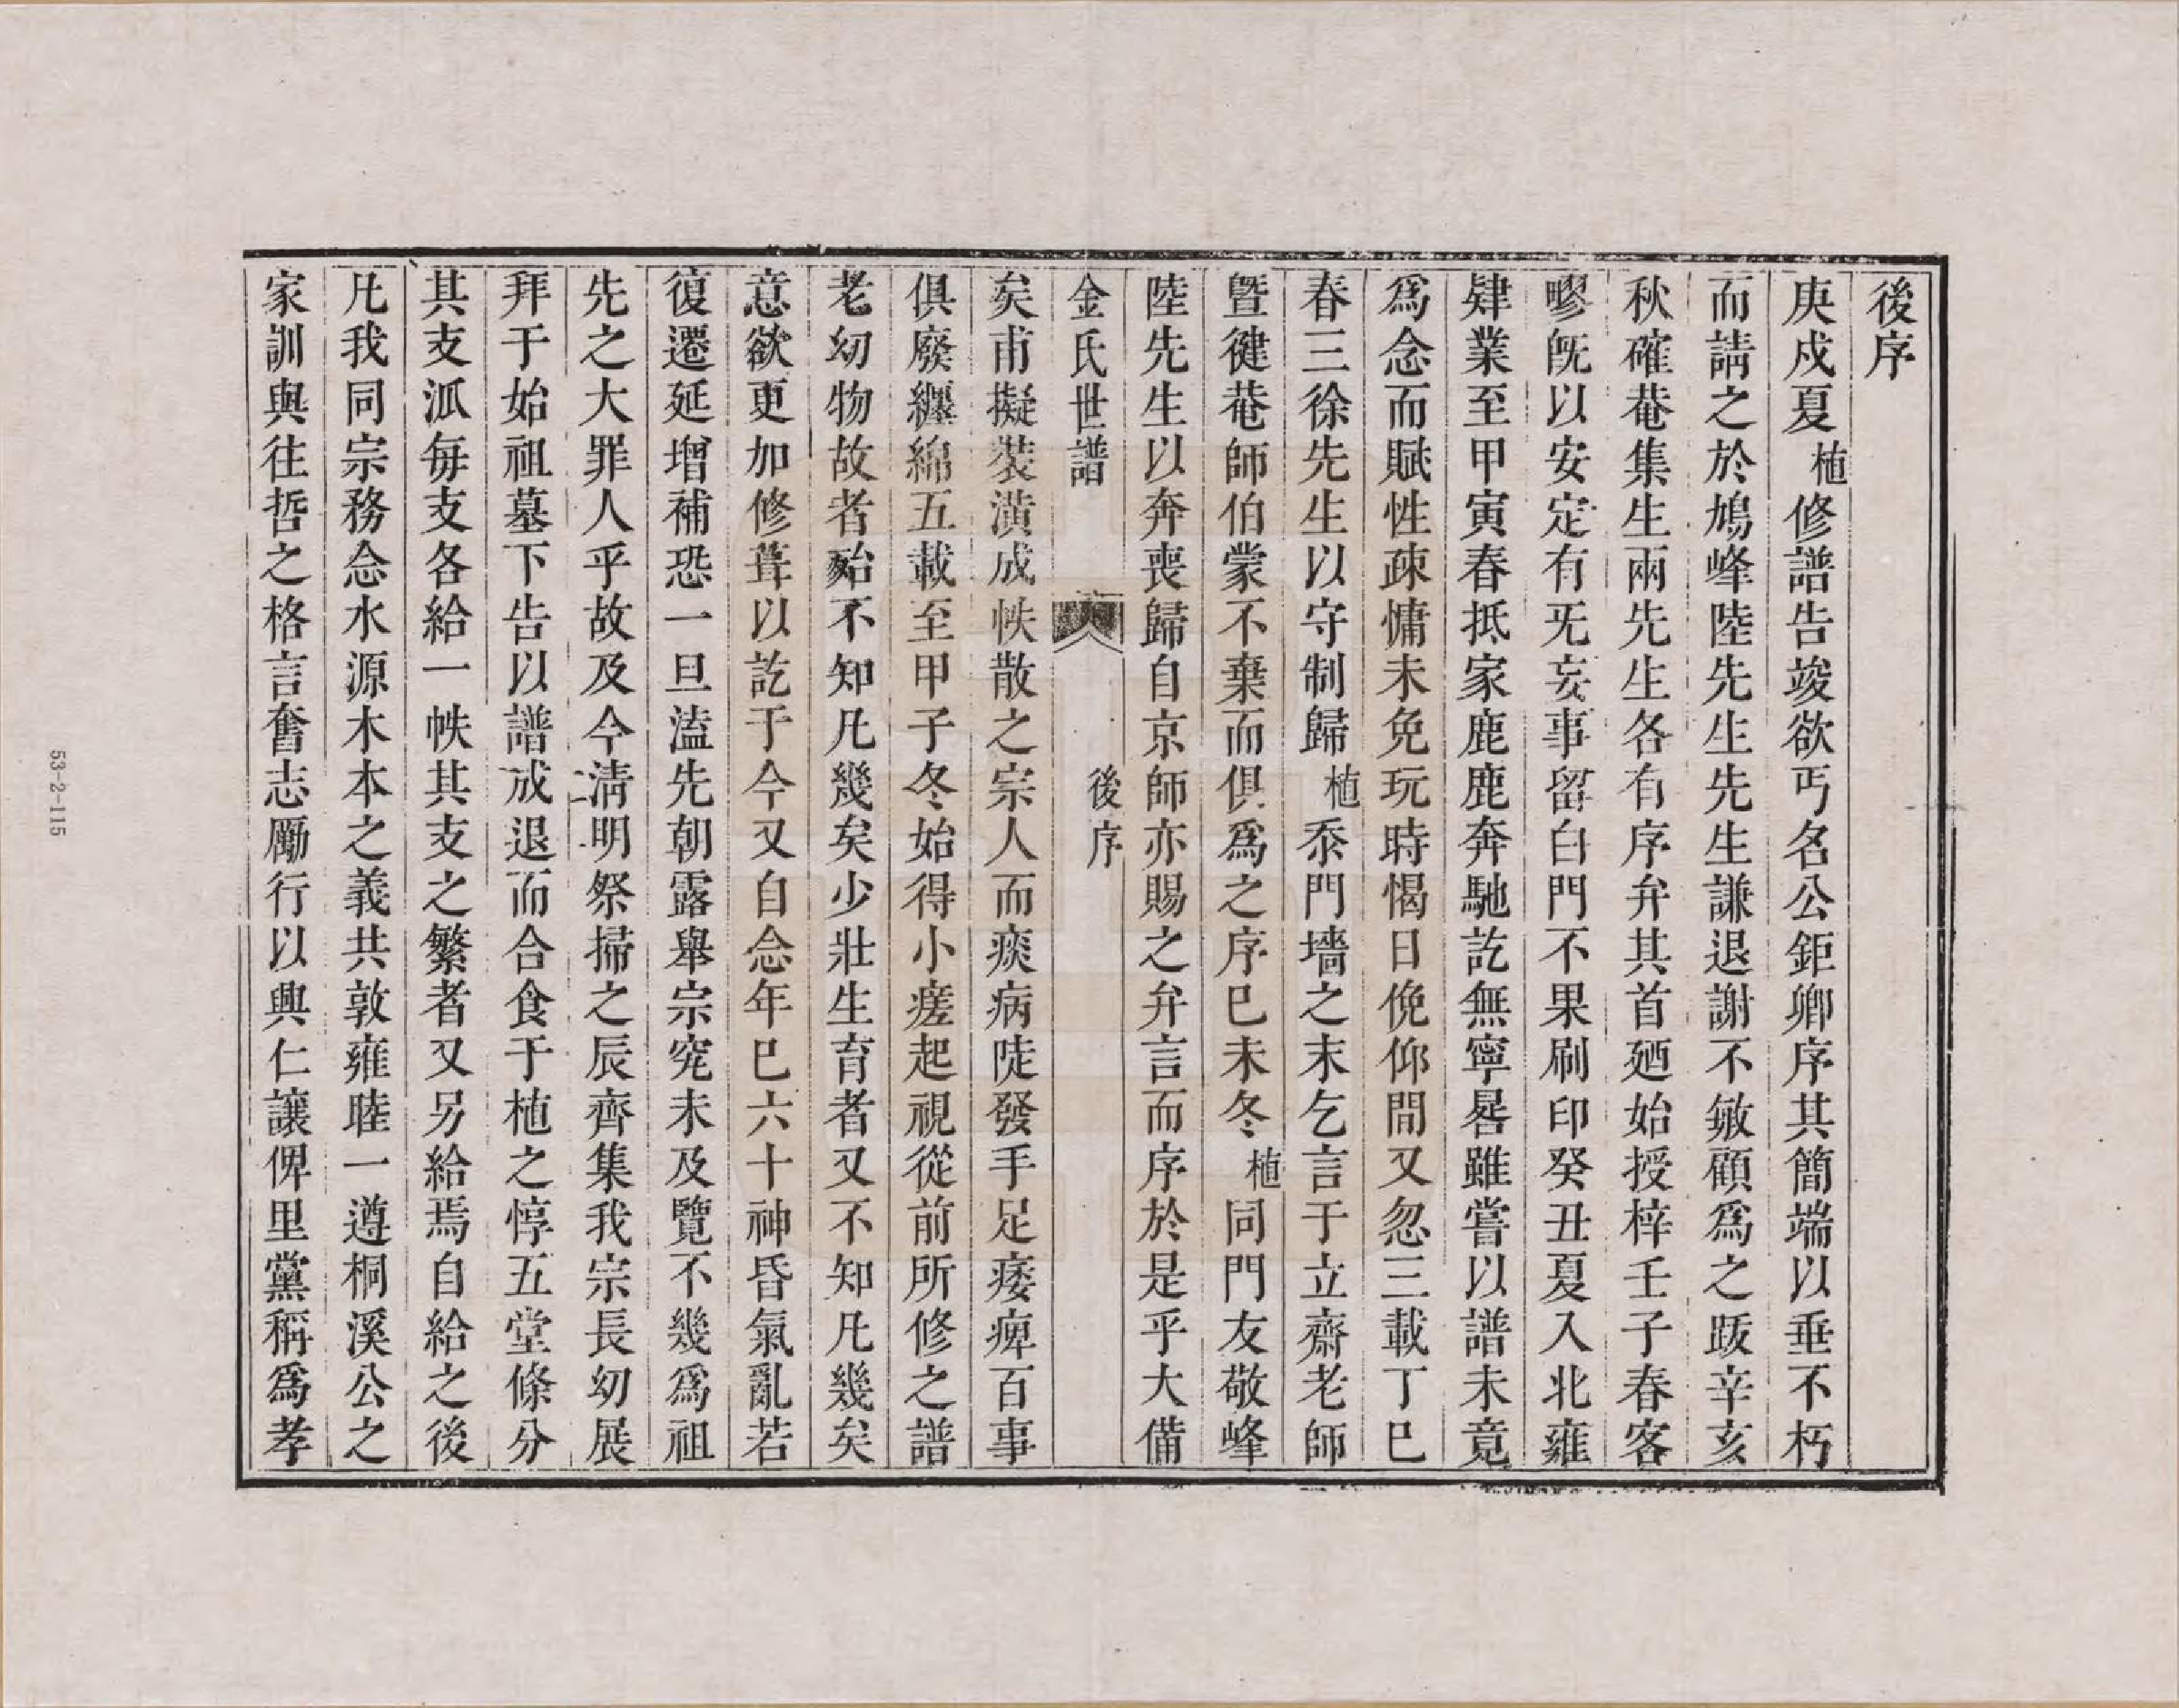 後序
庚戌夏植修譜告竣欲丐名公鉅卿序其簡端以垂不朽
而請之於鳩峰陸先生先生謙退謝不敏顧爲之跋辛亥
秋確菴集生兩先生各有序弁其首廼始授梓壬子春客
鄝旣以安定有旡妄事留白門不果刷印癸丑夏入北雍
肄業至甲寅春抵家鹿鹿奔馳訖無寧晷雖嘗以譜未竟
爲念而賦性疎慵未免玩時愒日俛仰間又忽三載丁巳
春三徐先生以守制歸植忝門墻之末乞言于立齋老師
曁健菴師伯蒙不棄而俱爲之序巳未冬植同門友敬峰
陸先生以奔喪歸自京師亦賜之弁言而序於是乎大備
金氏世譜 後序
矣甫擬裝潢成帙散之宗人而痰病陡發手足痿痺百事
俱廢纏綿五載至甲子冬始得小瘥起視從前所修之譜
老幼物故者殆不知凡幾矣少壯生育者又不知凡幾矣
意欲更加修葺以訖于今又自念年巳六十神昏氣亂若
復遷延增補恐一旦溘先朝露舉宗究未及覽不幾爲祖
先之大罪人乎故及今淸明祭掃之辰齊集我宗長幼展
拜于始祖墓下告以譜成退而合食于植之惇五堂條分
其支泒每支各給一帙其支之繁者又另給焉自給之後
凡我同宗務念水源木本之義共敦雍睦一遵桐溪公之
家訓與往哲之格言奮志勵行以興仁讓俾里黨稱爲孝
53-2-115